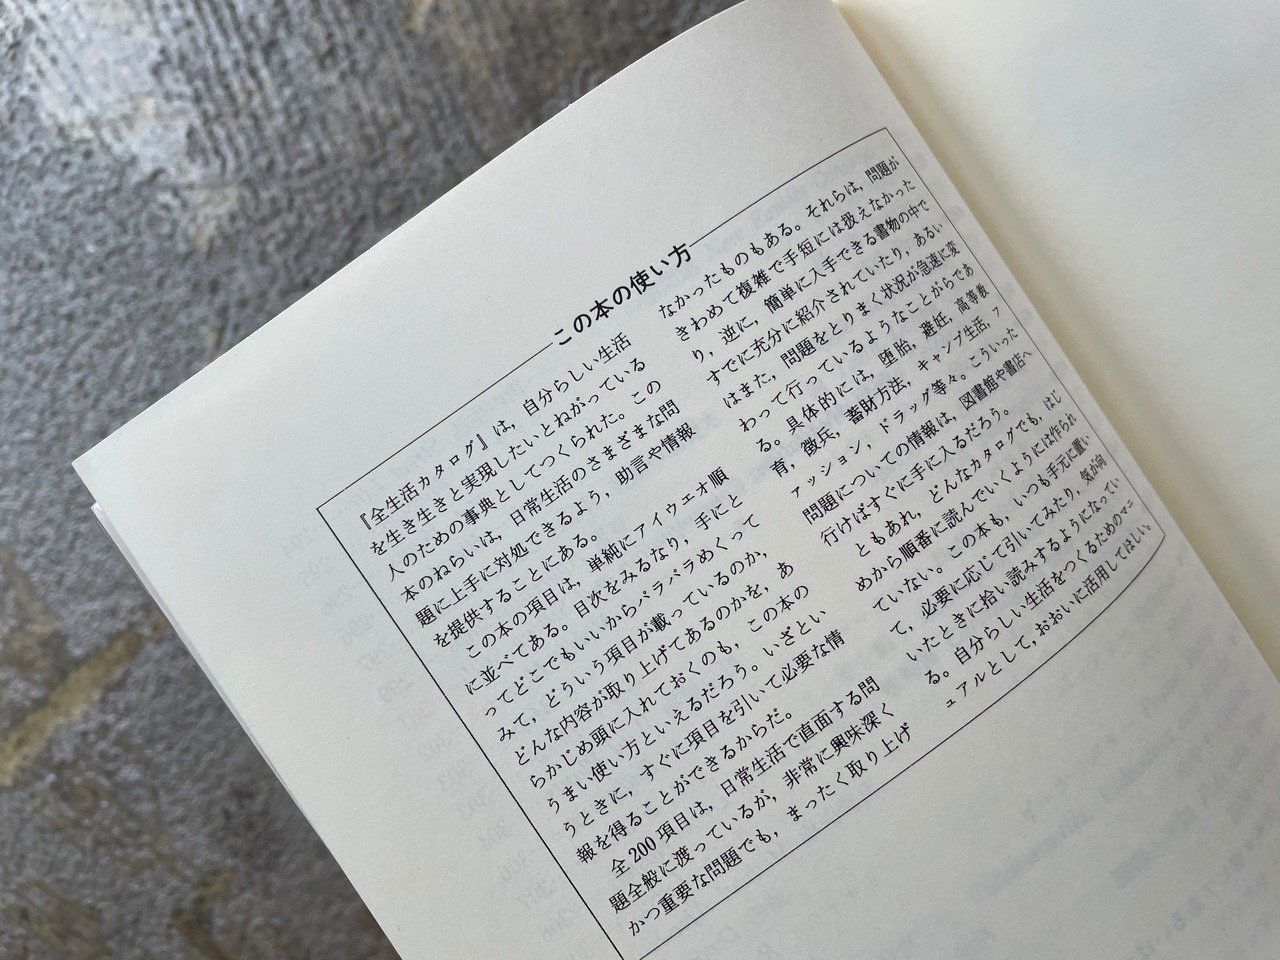 この本の使い方
『全生活カタログ』は，自分らしい生活
を生き生きと実現したいとねがっている
人のための事典としてつくられた。この
本のねらいは，日常生活のさまざまな問
題に上手に対処できるよう，助言や情報
を提供することにある。
この本の項目は，単純にアイウエオ順
に並べてある。目次をみるなり，手にと
ってどこでもいいからパラパラめくって
みて，どういう項目が載っているのか，
どんな内容が取り上げてあるのかを，あ
らかじめ頭に入れておくのも，この本の
うまい使い方といえるだろう。いざとい
うときに，すぐに項目を引いて必要な情
報を得ることができるからだ。
全200項目は，日常生活で直面する問
題全般に渡っているが，非常に興味深く
かつ重要な問題でも，まったく取り上げ
なかったものもある。それらは，問題が
きわめて複雑で手短には扱えなかった
り，逆に，簡単に入手できる書物の中で
すでに充分に紹介されていたり，あるい
はまた，問題をとりまく状況が急速に変
わって行っているようなことがらであ
る。具体的には，堕胎，避妊，高等教
育，徴兵，蓄財方法，キャンプ生活，フ
ァッション，ドラッグ等々。こういった
問題についての情報は，図書館や書店へ
行けばすぐに手に入るだろう。
ともあれ，どんなカタログでも，はじ
めから順番に読んでいくようには作られ
ていない。この本も，いつも手元に置い
て，必要に応じて引いてみたり，気が向
いたときに拾い読みするようになってい
る。自分らしい生活をつくるためのマニ
ュアルとして，おおいに活用してほしい。